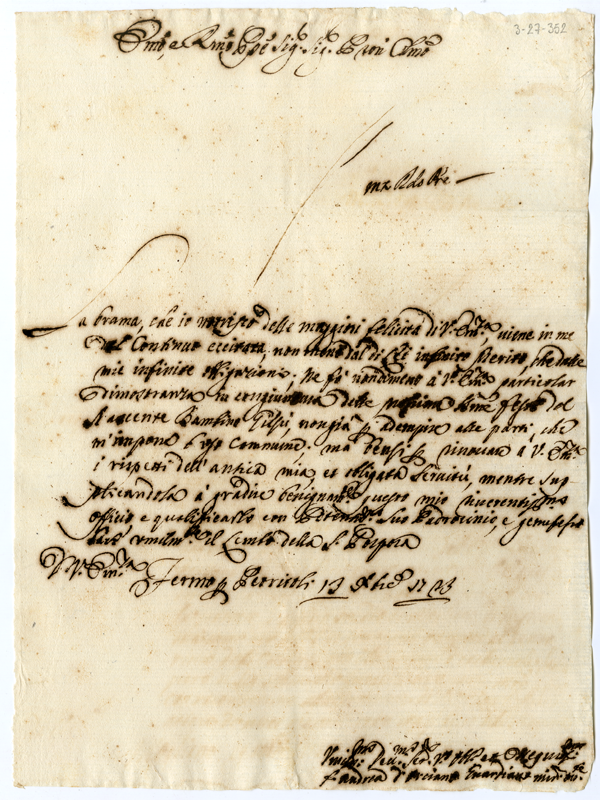 3-27-352
Emo, e Rmo Ppe Sig.r Sig.r Pron Clmo
La brama, che io nutrisco delle maggiori felicità di V. Em.za, viene in me
dal continuo eccitata, non meno dal di Lei infinito Merito, che dalle
mie infinite obligazioni; Ne fò nondimeno à V. Em.za particolar
dimostranza in congiuntura delle Sme feste del
Nascente Bambino Giesù, non già p adempire alle parti, che
m'impone l'uso commune; mà bensì p rinovare à V. Em.za
i rispetti dell'antica mia et obligata servitù, mentre sup
plicandola à gradire benignam.te questo mio riverentissimo
officio e qualificarlo con Suo Padrocinio, e genuflesso
bacio umilm.te il Lembo della S. Porpora
D. V. Em.za Fermo p Petritoli 13 Xbre 1723
Umil.mo Dev.mo Ser.
f. Andrea d' Guardiano